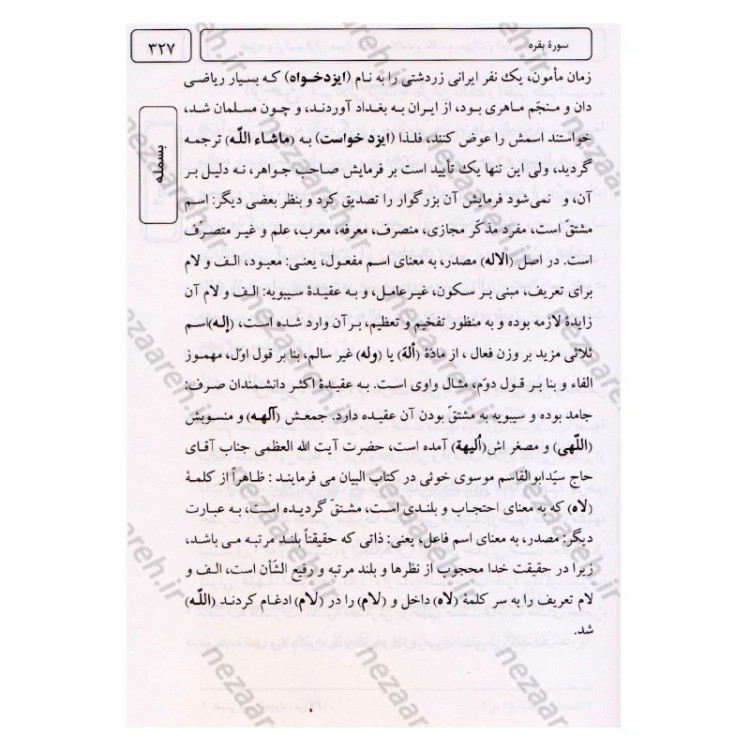 سورۀ بقره
۳۲۷
زمان مأمون، یک نفر ایرانی زردشتی را به نام (ایزدخواه) که بسیار ریاضی
دان و منجّم ماهری بود، از ایران به بغداد آوردند، و چون مسلمان شد،
خواستند اسمش را عوض کنند، فلذا (ایزد خواست) به (ماشاء اللّه) ترجمه
گردید، ولی این تنها یک تأیید است بر فرمایش صاحب جواهر، نه دلیل بر
آن، و نمی‌شود فرمایش آن بزرگوار را تصدیق کرد و بنظر بعضی دیگر: اسم
مشتقّ است، مفرد مذکّر مجازی، منصرف، معرفه، معرب، علم و غیر متصرّف
است. در اصل (الاله) مصدر، به معنای اسم مفعول، یعنی: معبود، الف و لام
برای تعریف، مبنی بر سکون، غیرعامل، و به عقیدۀ سیبویه: الف و لام آن
زایدۀ لازمه بوده و به منظور تفخیم و تعظیم، بر آن وارد شده است، (إله)اسم
ثلاثی مزید بر وزن فعال ، از مادّۀ (ألهَ) یا (وله) غیر سالم، بنا بر قول اوّل، مهموز
الفاء و بنا بر قول دوّم، مثال واوی است. به عقیدۀ اکثر دانشمندان صرف:
جامد بوده و سیبویه به مشتقّ بودن آن عقیده دارد. جمعش (آلهه) و منسوبش
(اللّهی) و مصغر اش(اُلیهة) آمده است، حضرت آیت الله العظمی جناب آقای
حاج سیّدابوالقاسم موسوی خوئی در کتاب البیان می فرمایند : ظاهراً از کلمۀ
(لاه) که به معنای احتجاب و بلندی است، مشتقّ گردیده است، به عبارت
دیگر: مصدر، به معنای اسم فاعل، یعنی: ذاتی که حقیقتاً بلند مرتبه می باشد،
زیرا در حقیقت خدا محجوب از نظرها و بلند مرتبه و رفیع الشّأن است، الف و
لام تعریف را به سر کلمۀ (لاه) داخل و (لام) را در (لام) ادغام کردند (اللّه)
شد.
بسمله
nezaareh.ir